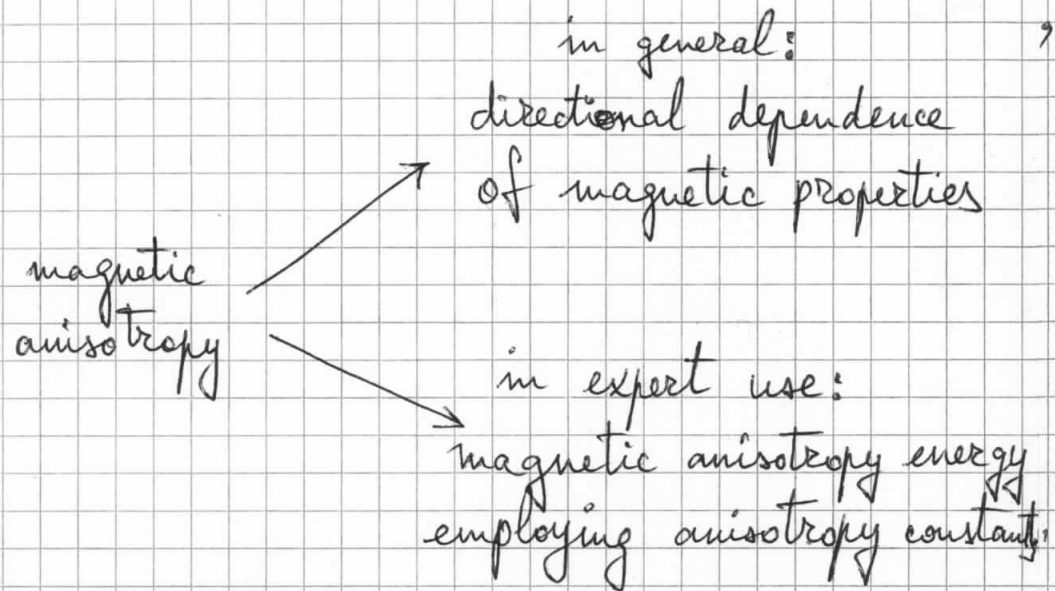 in general:
directional dependence
of magnetic properties
magnetic
anisotropy
in expert use:
magnetic anisotropy energy
employing anisotropy constants